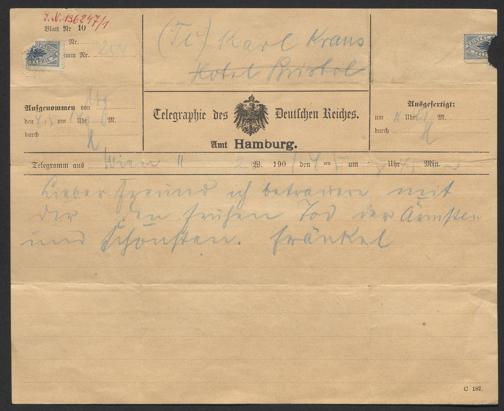 I.N. 136297/1
Blatt Nr. 10
Nr.
(Tc) Karl Kraus
Hotel Bristol
Aufgenommen von
Ausgefertigt:
den um Uhr M.
um Uhr M.
durch
durch
Telegraphie des Deutschen Reiches.
Amt Hamburg.
Telegramm aus Wien W. 190 den um Uhr Min.
Lieber Freund ich betrauere mit
der den frühen Tod der Ärmsten
und Schönsten. Fränkel
C 187.